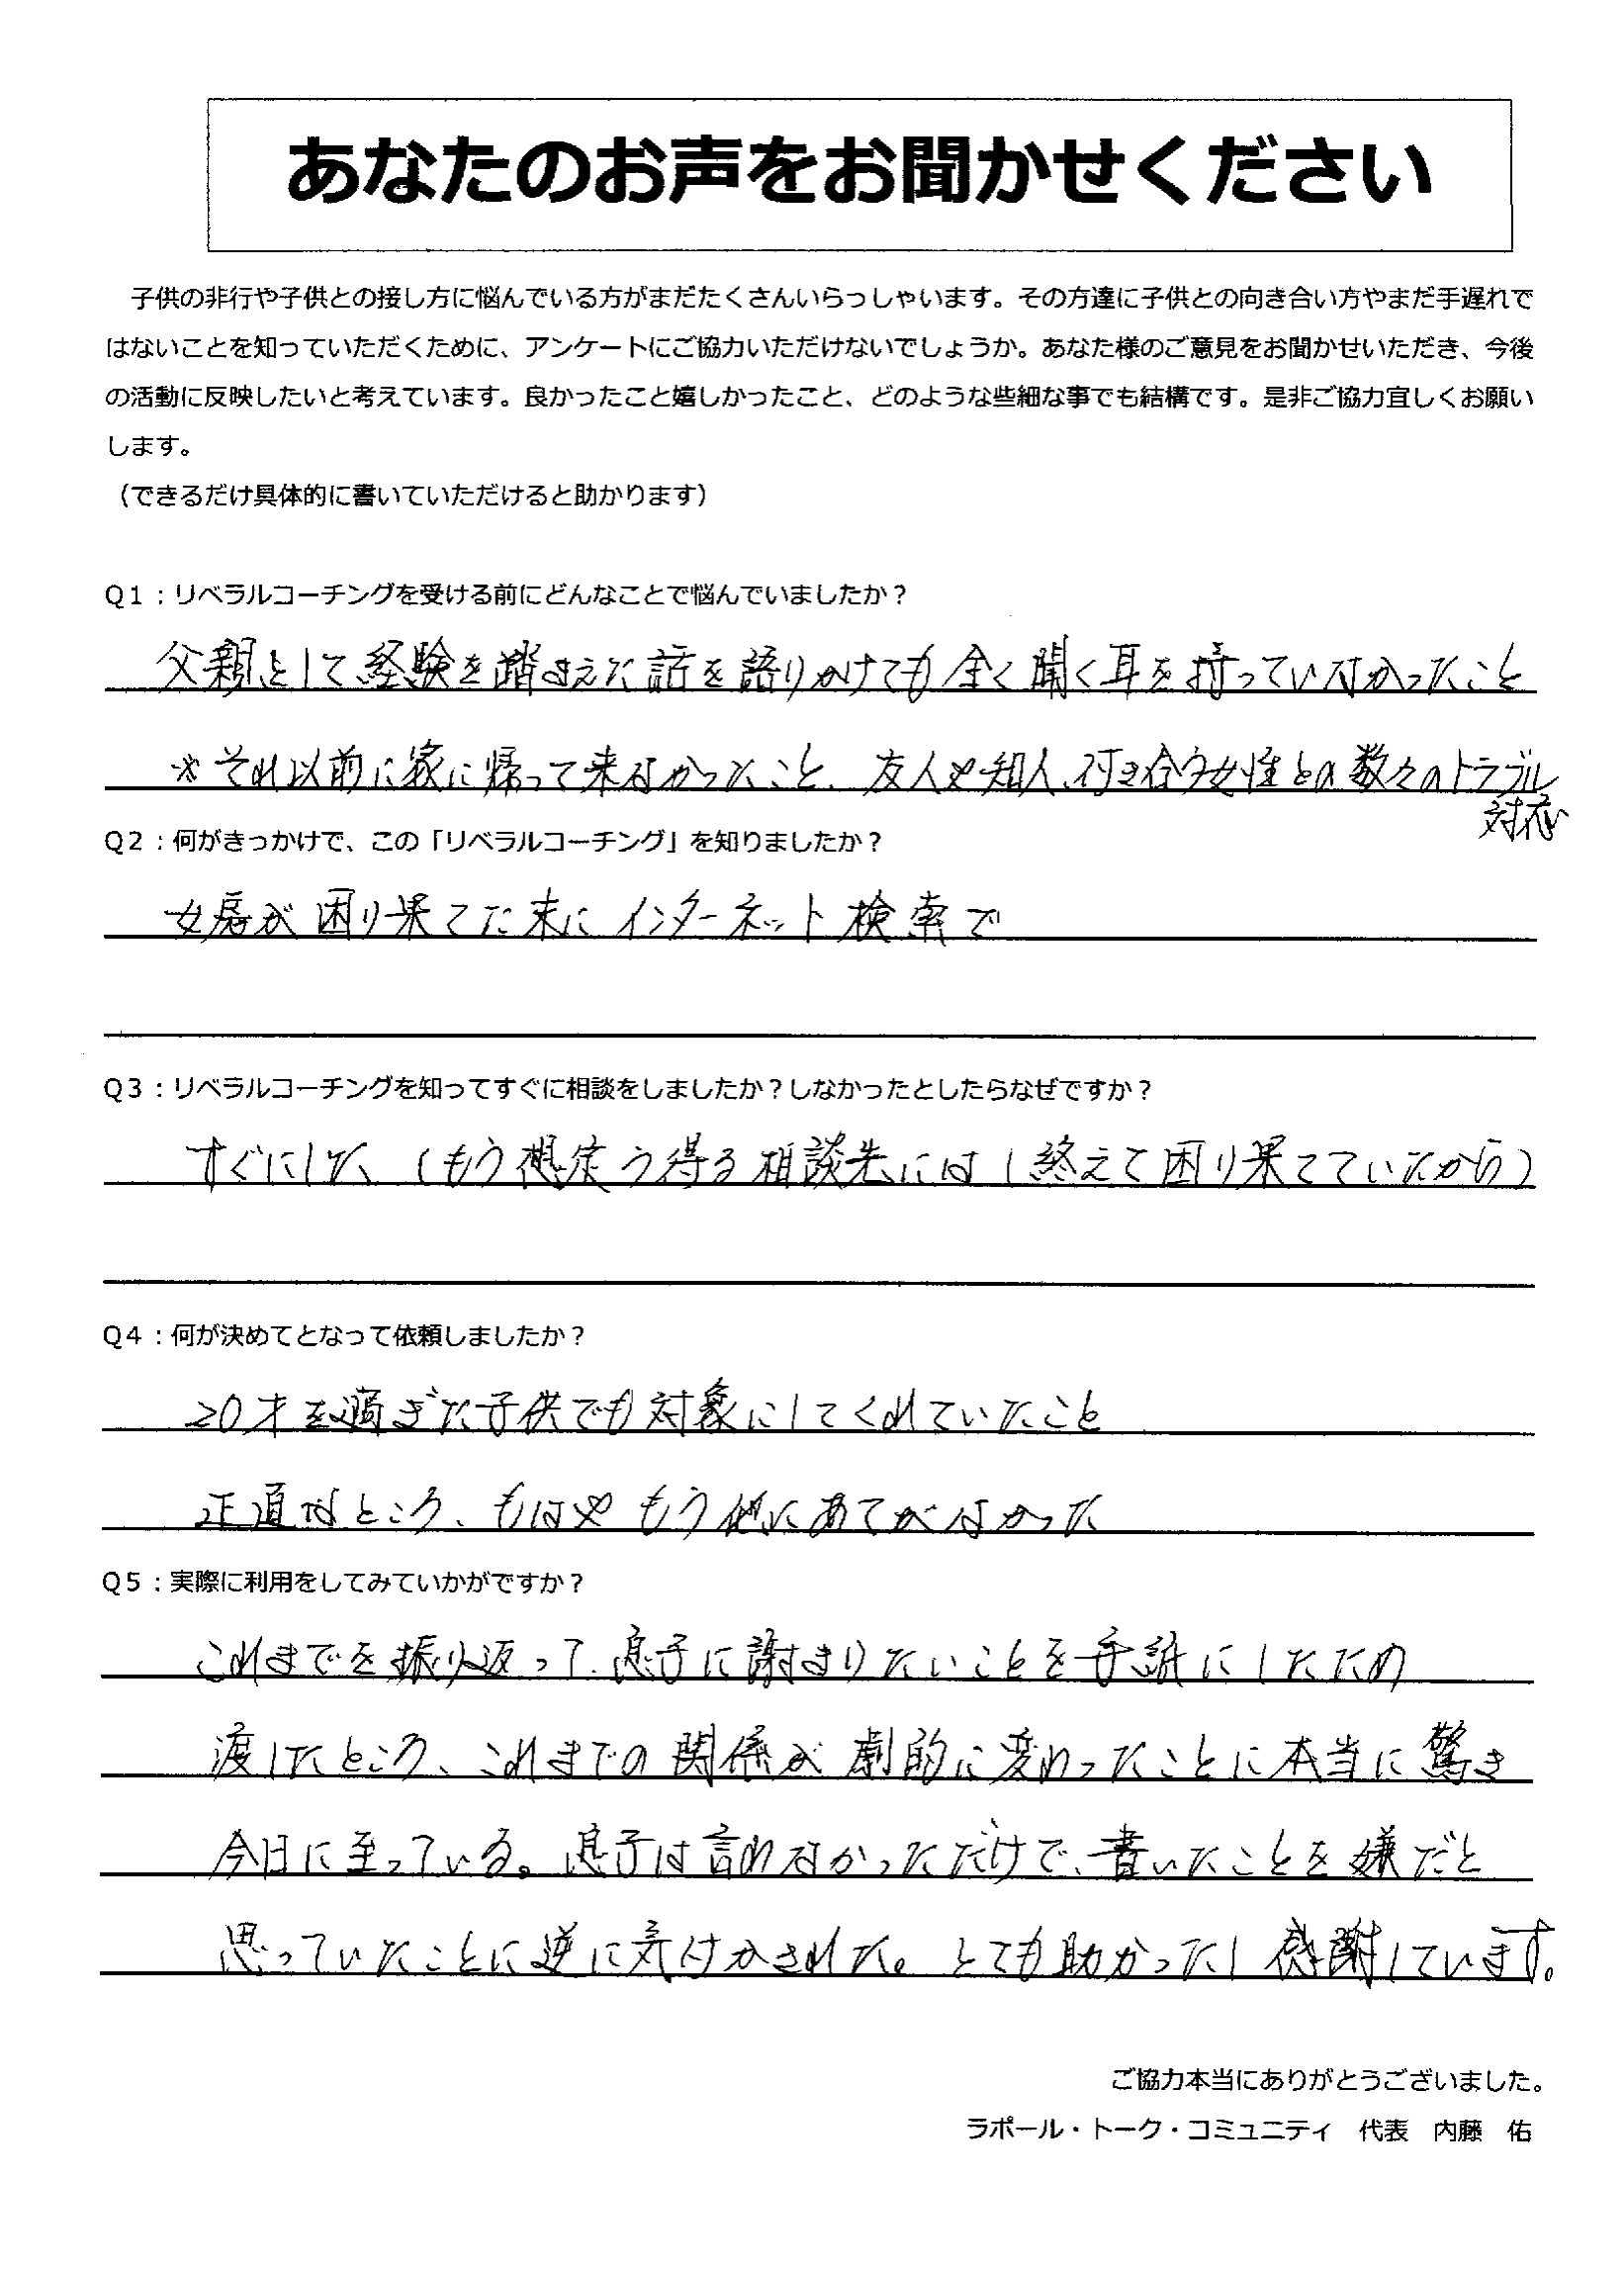 あなたのお声をお聞かせください
子供の非行や子供との接し方に悩んでいる方がまだたくさんいらっしゃいます。その方達に子供との向き合い方やまだ手遅れで
はないことを知っていただくために、アンケートにご協力いただけないでしょうか。あなた様のご意見をお聞かせいただき、今後
の活動に反映したいと考えています。良かったこと嬉しかったこと、どのような些細な事でも結構です。是非ご協力宜しくお願い
します。
（できるだけ具体的に書いていただけると助かります）
Q1：リベラルコーチングを受ける前にどんなことで悩んでいましたか？
父親として経験を踏まえた話を語りかけても全く聞く耳を持っていなかったこと
※それ以前に家に帰って来なかったこと、友人や知人、付き合う女性との数々のトラブル
対応
Q2：何がきっかけで、この「リベラルコーチング」を知りましたか？
女房が困り果てた末にインターネット検索で
Q3：リベラルコーチングを知ってすぐに相談をしましたか？しなかったとしたらなぜですか？
すぐにした、（もう想定う得る相談先にはし終えて困り果てていたから）
Q4：何が決めてとなって依頼しましたか？
20才を過ぎた子供でも対象にしてくれていたこと
正直なところ、もはやもう他にあてがなかった
Q5：実際に利用をしてみていかがですか？
これまでを振り返って、息子に謝まりたいことを手紙にしたため
渡したところ、これまでの関係が劇的に変わったことに本当に驚き
今日に至っている。息子は言わなかっただけで、書いたことを嫌だと
思っていたことに逆に気付かされた。とても助かったし感謝しています。
ご協力本当にありがとうございました。
ラポール・トーク・コミュニティ　代表　内藤　佑